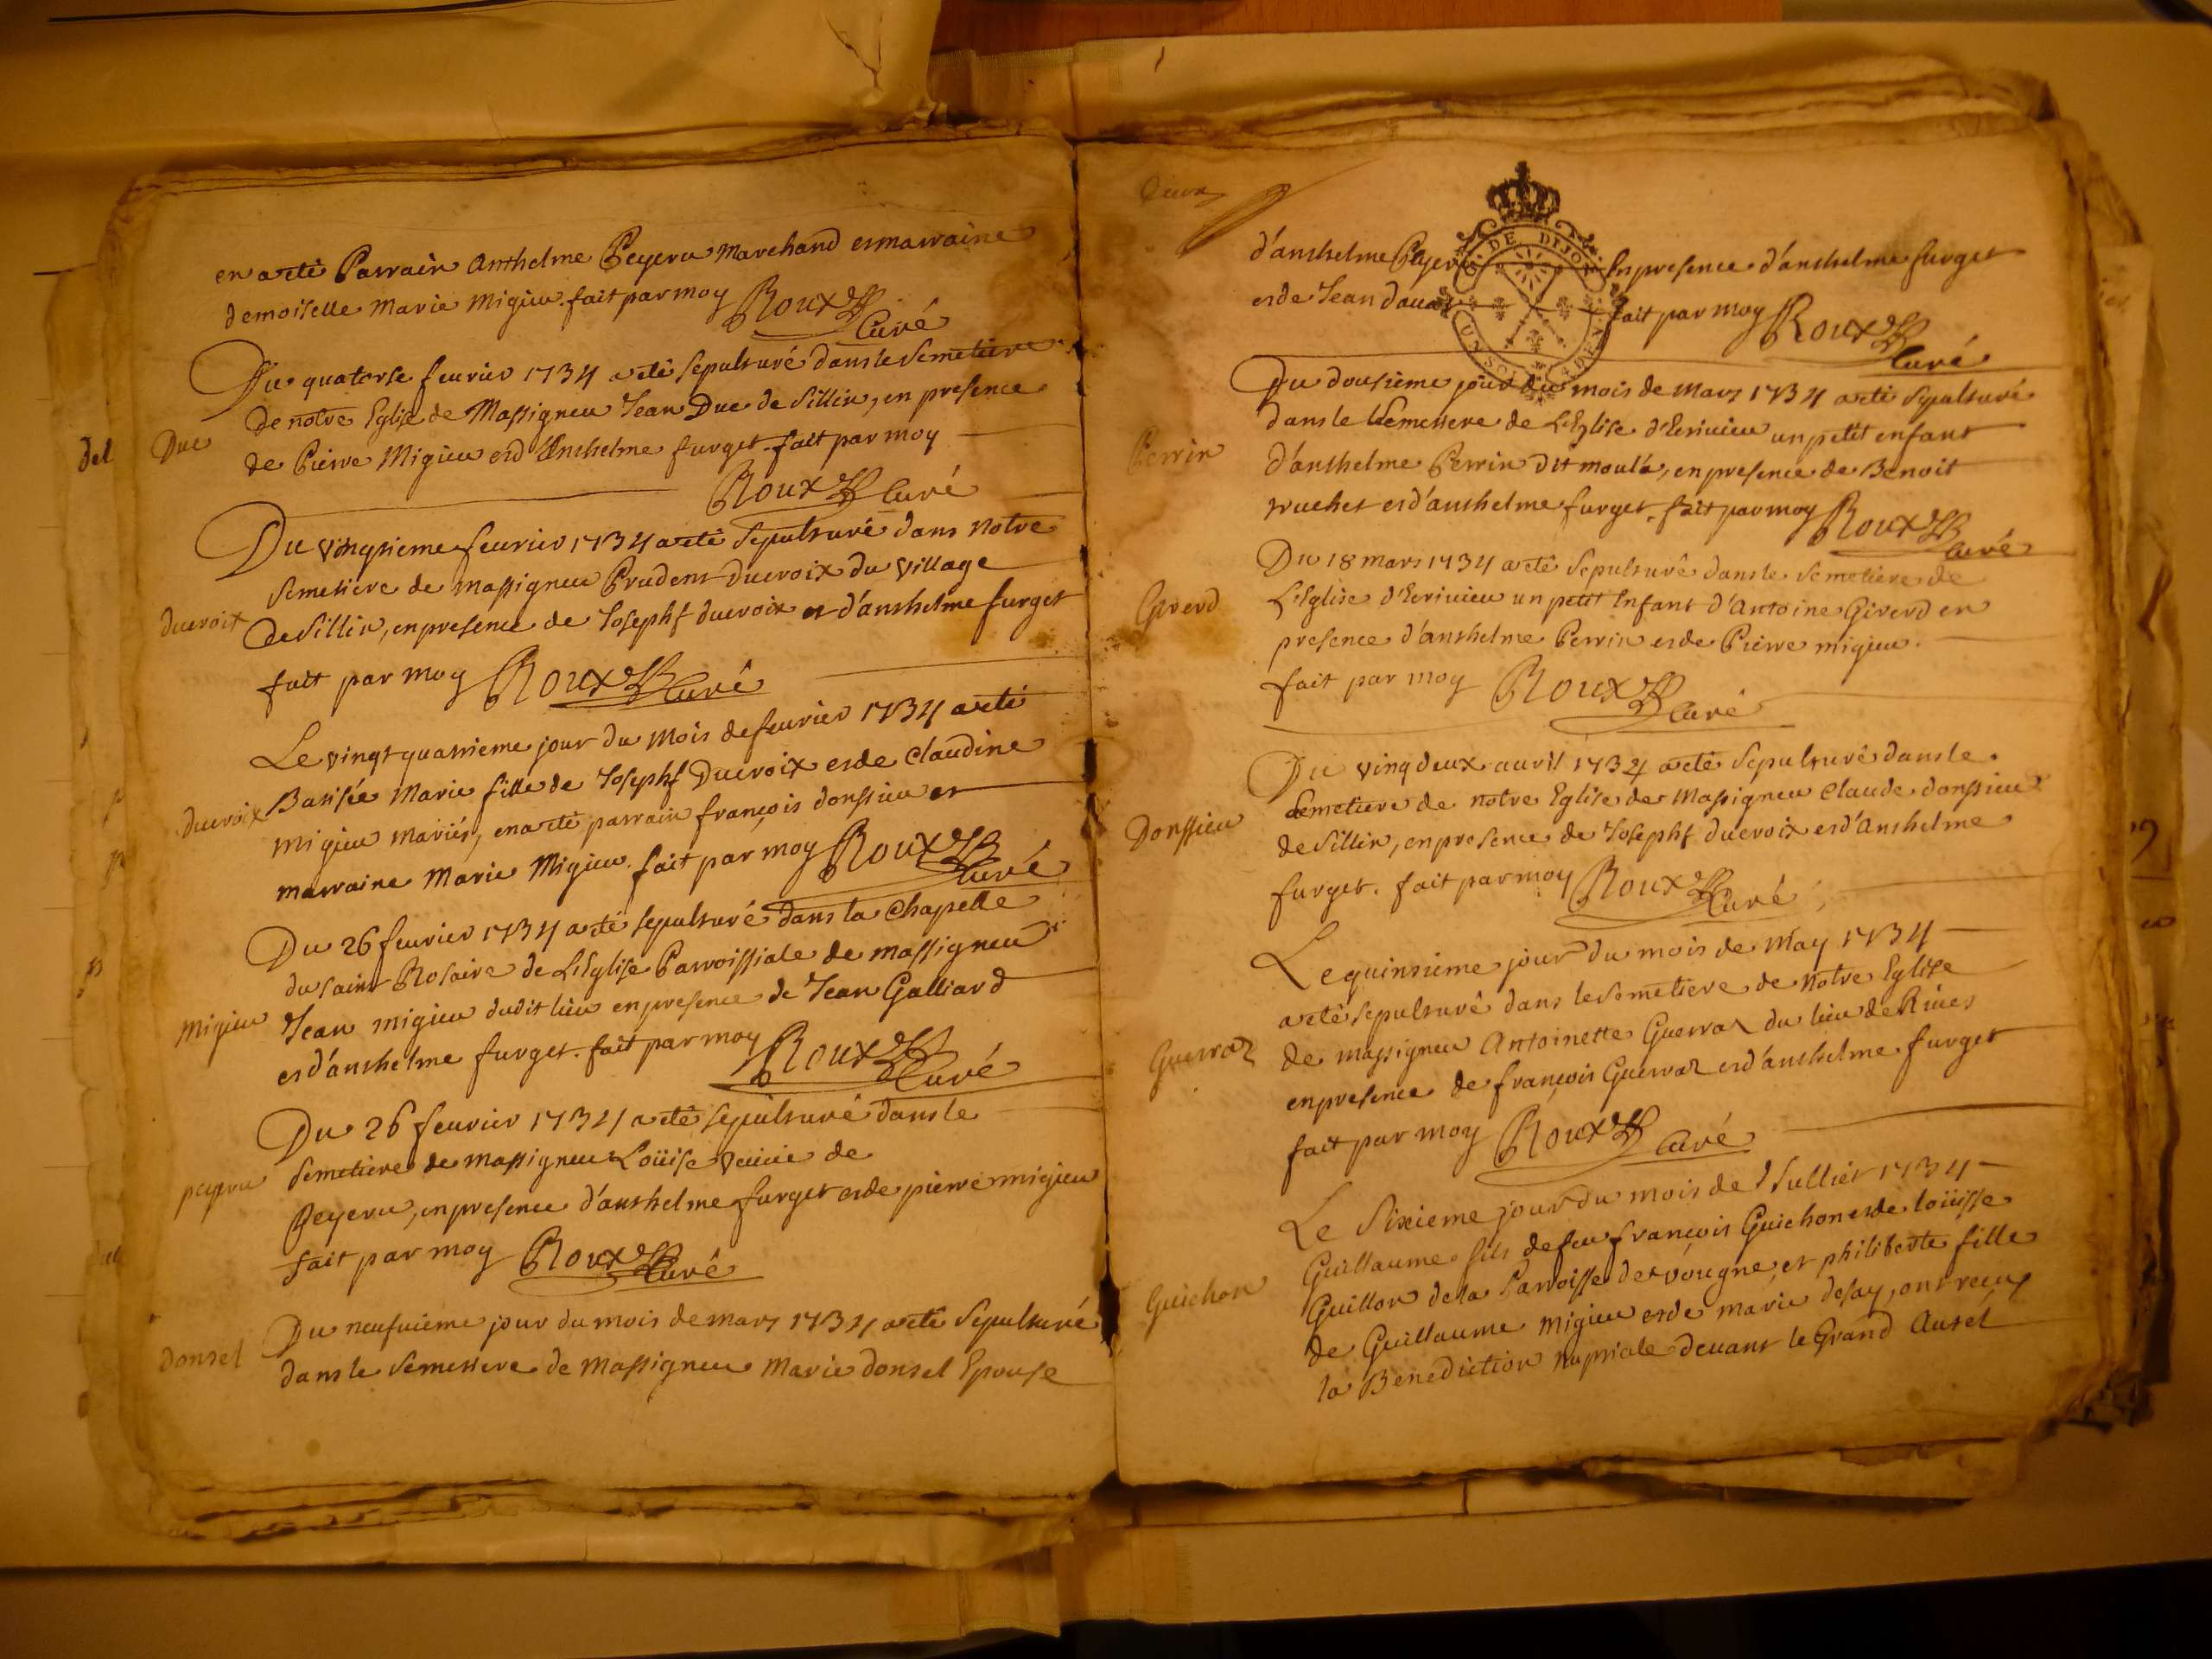 en a eté Parrain Anthelme Peyeru Marchand et marraine
demoiselle Marie Migieu. fait par moy Roux Curé
Du quatorse feurier 1734 a eté sepulturé dans le semetiere
Duc
de notre Eglise de Massigneu Jean Duc de Sillin, en presence
de Pierre Migieu et d'Anthelme furget. fait par moy
Roux Curé
Du vingtieme feurier 1734 a eté sepulturé dans notre
semetiere de massigneu Prudent ducroix du village
ducroix
de Sillin, en presence de Josephf ducroix et d'anthelme furget
fait par moy Roux Curé
Le vingt quatrieme jour du mois de feurier 1734 a eté
ducroix
Batisée Marie fille de Josephf Ducroix et de Claudine
migieu mariés, en a eté parrain françois donssieu et
marraine Marie Migieu. fait par moy Roux Curé
Du 26 feurier 1734 a eté sepulturé dans la Chapelle
du saint Rosaire de L'Eglise Parroissiale de massigneu
Migieu
Jean migieu dudit lieu en presence de Jean Galliard
et d'anthelme furget. fait par moy Roux Curé
Du 26 feurier 1734 a eté sepulturé dans le
peyeru
semetiere de massigneu Loüise veuue de
Peyeru, en presence d'anthelme furget et de pierre migieu
fait par moy Roux Curé
Du neufuieme jour du mois de mars 1734 a eté Sepulturé
donsel
dans le semetiere de Massigneu Marie donsel Epouse
del
d'anthelme Peyeru En presence d'anthelme furget
G. DE DIJON
et de Jean fait par moy Roux Curé
Du dousieme jour du mois de Mars 1734 a eté sepulturé
dans le semetiere de L'Eglise d'Ecriuieu un petit enfant
Perrin
d'anthelme Perrin dit moula, en presence de Benoit
ruchet et d'anthelme furget. fait par moy Roux Curé
Du 18 mars 1734 a eté sepulturé dans le semetiere de
Giverd
L'Eglise d'Ecriuieu un petit Enfant d'Antoine Giverd en
presence d'anthelme Perrin et de Pierre migieu.
fait par moy Roux Curé
Du vingdeux auril 1734 a eté sepulturé dans le
semetiere de notre Eglise de Massigneu Claude donssieu
Donssieu
de Sillin, en presence de Josephf ducroix et d'anthelme
furget. fait par moy Roux Curé
Le quinsieme jour du mois de May 1734
a eté sepulturé dans le semetiere de notre Eglise
Guerraz
de massigneu Antoinette Guerraz du lieu de Riues
en presence de françois Guerraz et d'anthelme furget
fait par moy Roux Curé
Le sixieme jour du mois de Julliet 1734
Guillaume fils de feu françois Guichon et de loüisse
Guichon
Guillon de la Parroisse de vougne, et philiberte fille
de Guillaume Migieu et de marie desay, ont receu
la Benediction Nuptiale deuant le Grand Autel